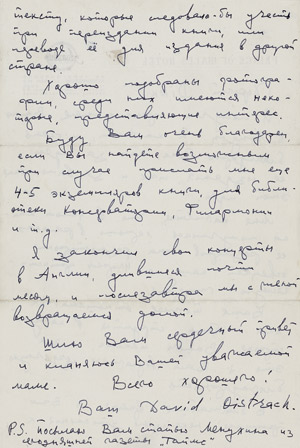 тексту, которые следовало-бы учесть
при переиздании книги, или
переводе её для издания в другой
стране.
Хорошо подобраны фотогра-
фии, среди них имеются неко-
торые, представляющие интерес.
Буду Вам очень благодарен,
если Вы найдёте возможным
при случае прислать мне еще
4-5 экземпляров книги, для библи-
отеки Консерватории, Филармонии
и т.д.
Я закончил свои концерты
в Англии, длившиеся почти
месяц, и послезавтра мы с женой
возвращаемся домой.
Шлю Вам сердечный привет
и кланяюсь Вашей уважаемой
маме. Всего хорошего!
Ваш David Oistrach.
P.S. посылаю Вам статью Менухина из
сегодняшней газеты „Таймс"